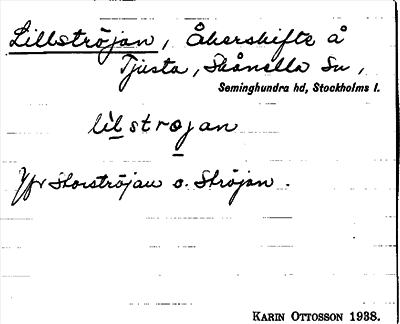 Lillströjan, Åkerskifte å
Tjusta, Skånella Sn,
Seminghundra hd, Stockholms l.
lìlstrøjan
Jfr Storströjan o. Ströjan.
KARIN OTTOSSON 1938.